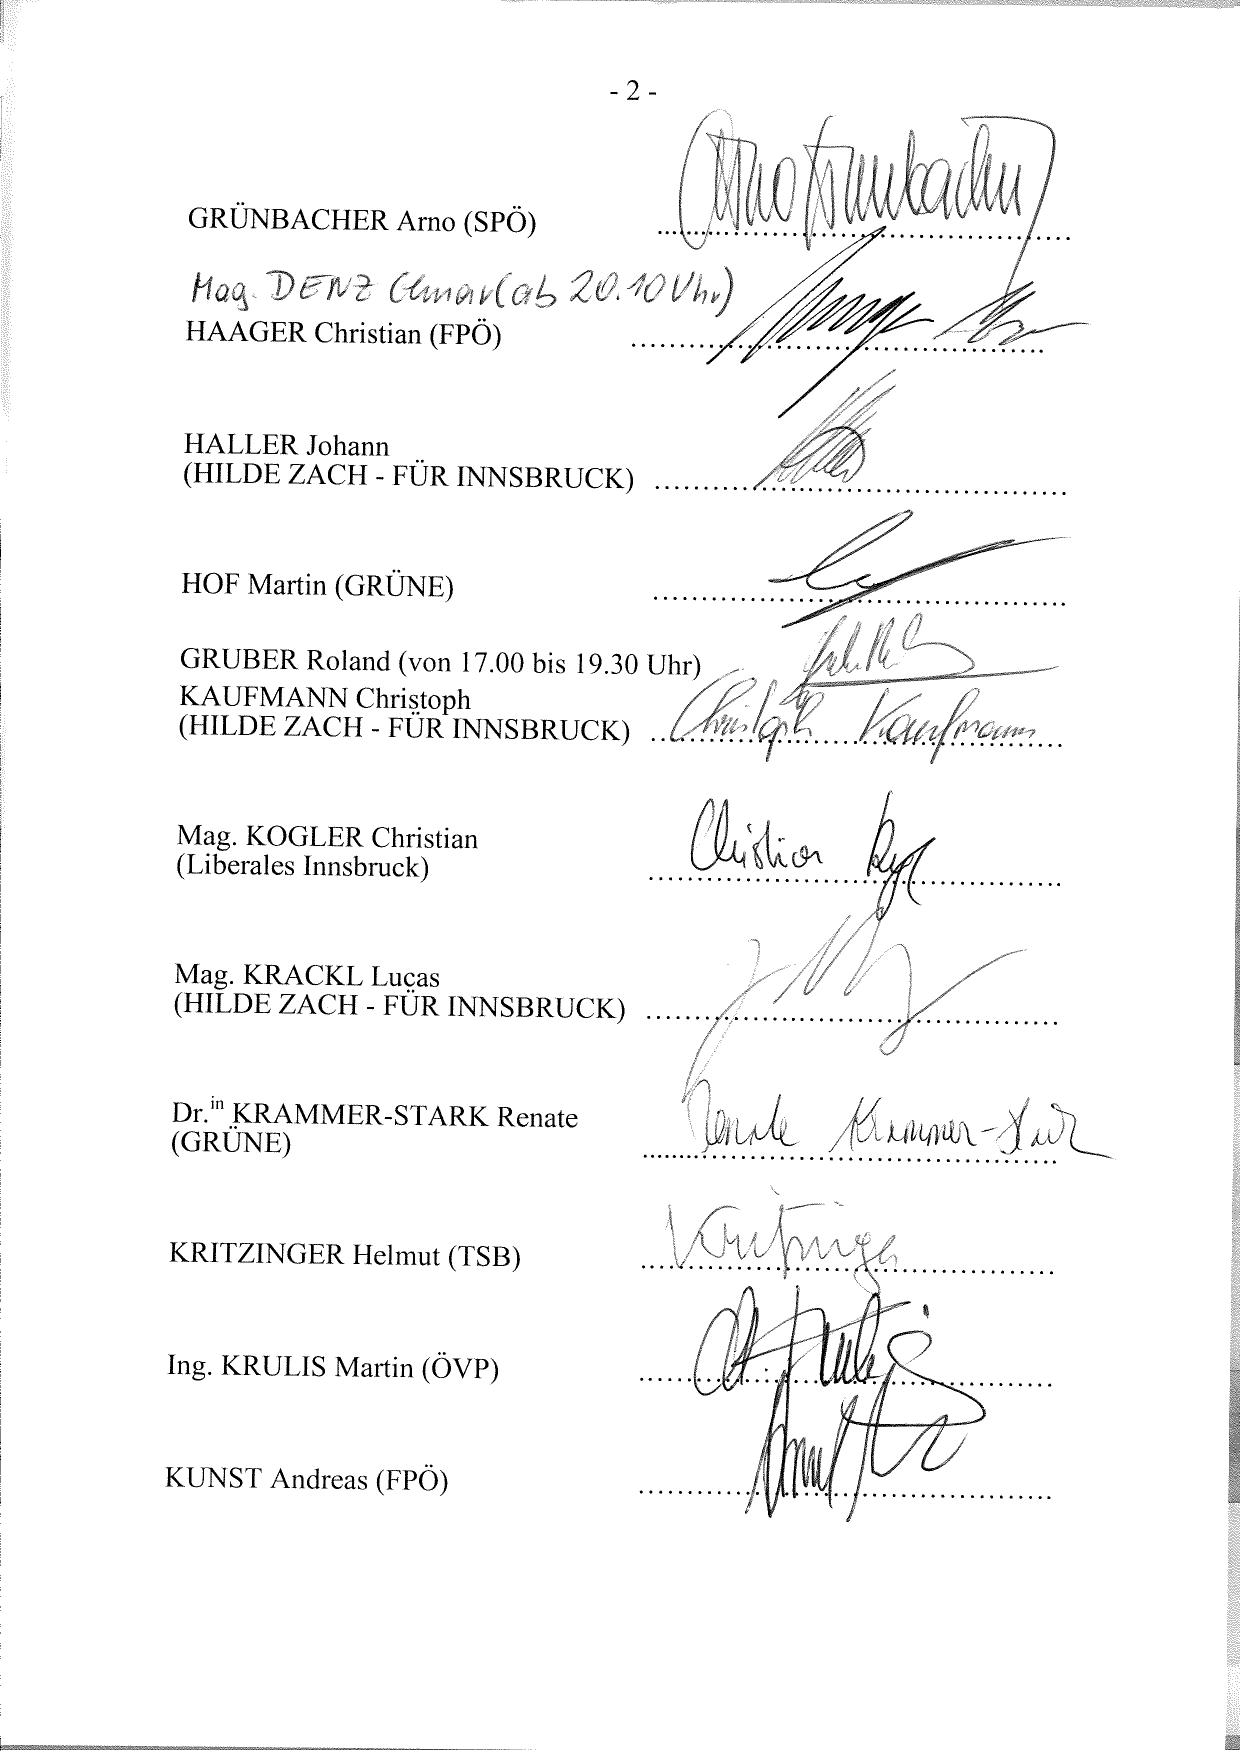 - 2 -
Arno Grünbacher
GRÜNBACHER Arno (SPÖ)
Mag. DENZ Elmar (ab 20.10 Uhr)
HAAGER Christian (FPÖ)
HALLER Johann
(HILDE ZACH - FÜR INNSBRUCK)
HOF Martin (GRÜNE)
GRUBER Roland (von 17.00 bis 19.30 Uhr)
KAUFMANN Christoph
(HILDE ZACH - FÜR INNSBRUCK) Christoph Kaufmann
Mag. KOGLER Christian Christian
(Liberales Innsbruck)
Mag. KRACKL Lucas
(HILDE ZACH - FÜR INNSBRUCK)
Dr.in KRAMMER-STARK Renate Renate Krammer-Stark
(GRÜNE)
KRITZINGER Helmut (TSB) Kritzinger
Ing. KRULIS Martin (ÖVP)
KUNST Andreas (FPÖ)